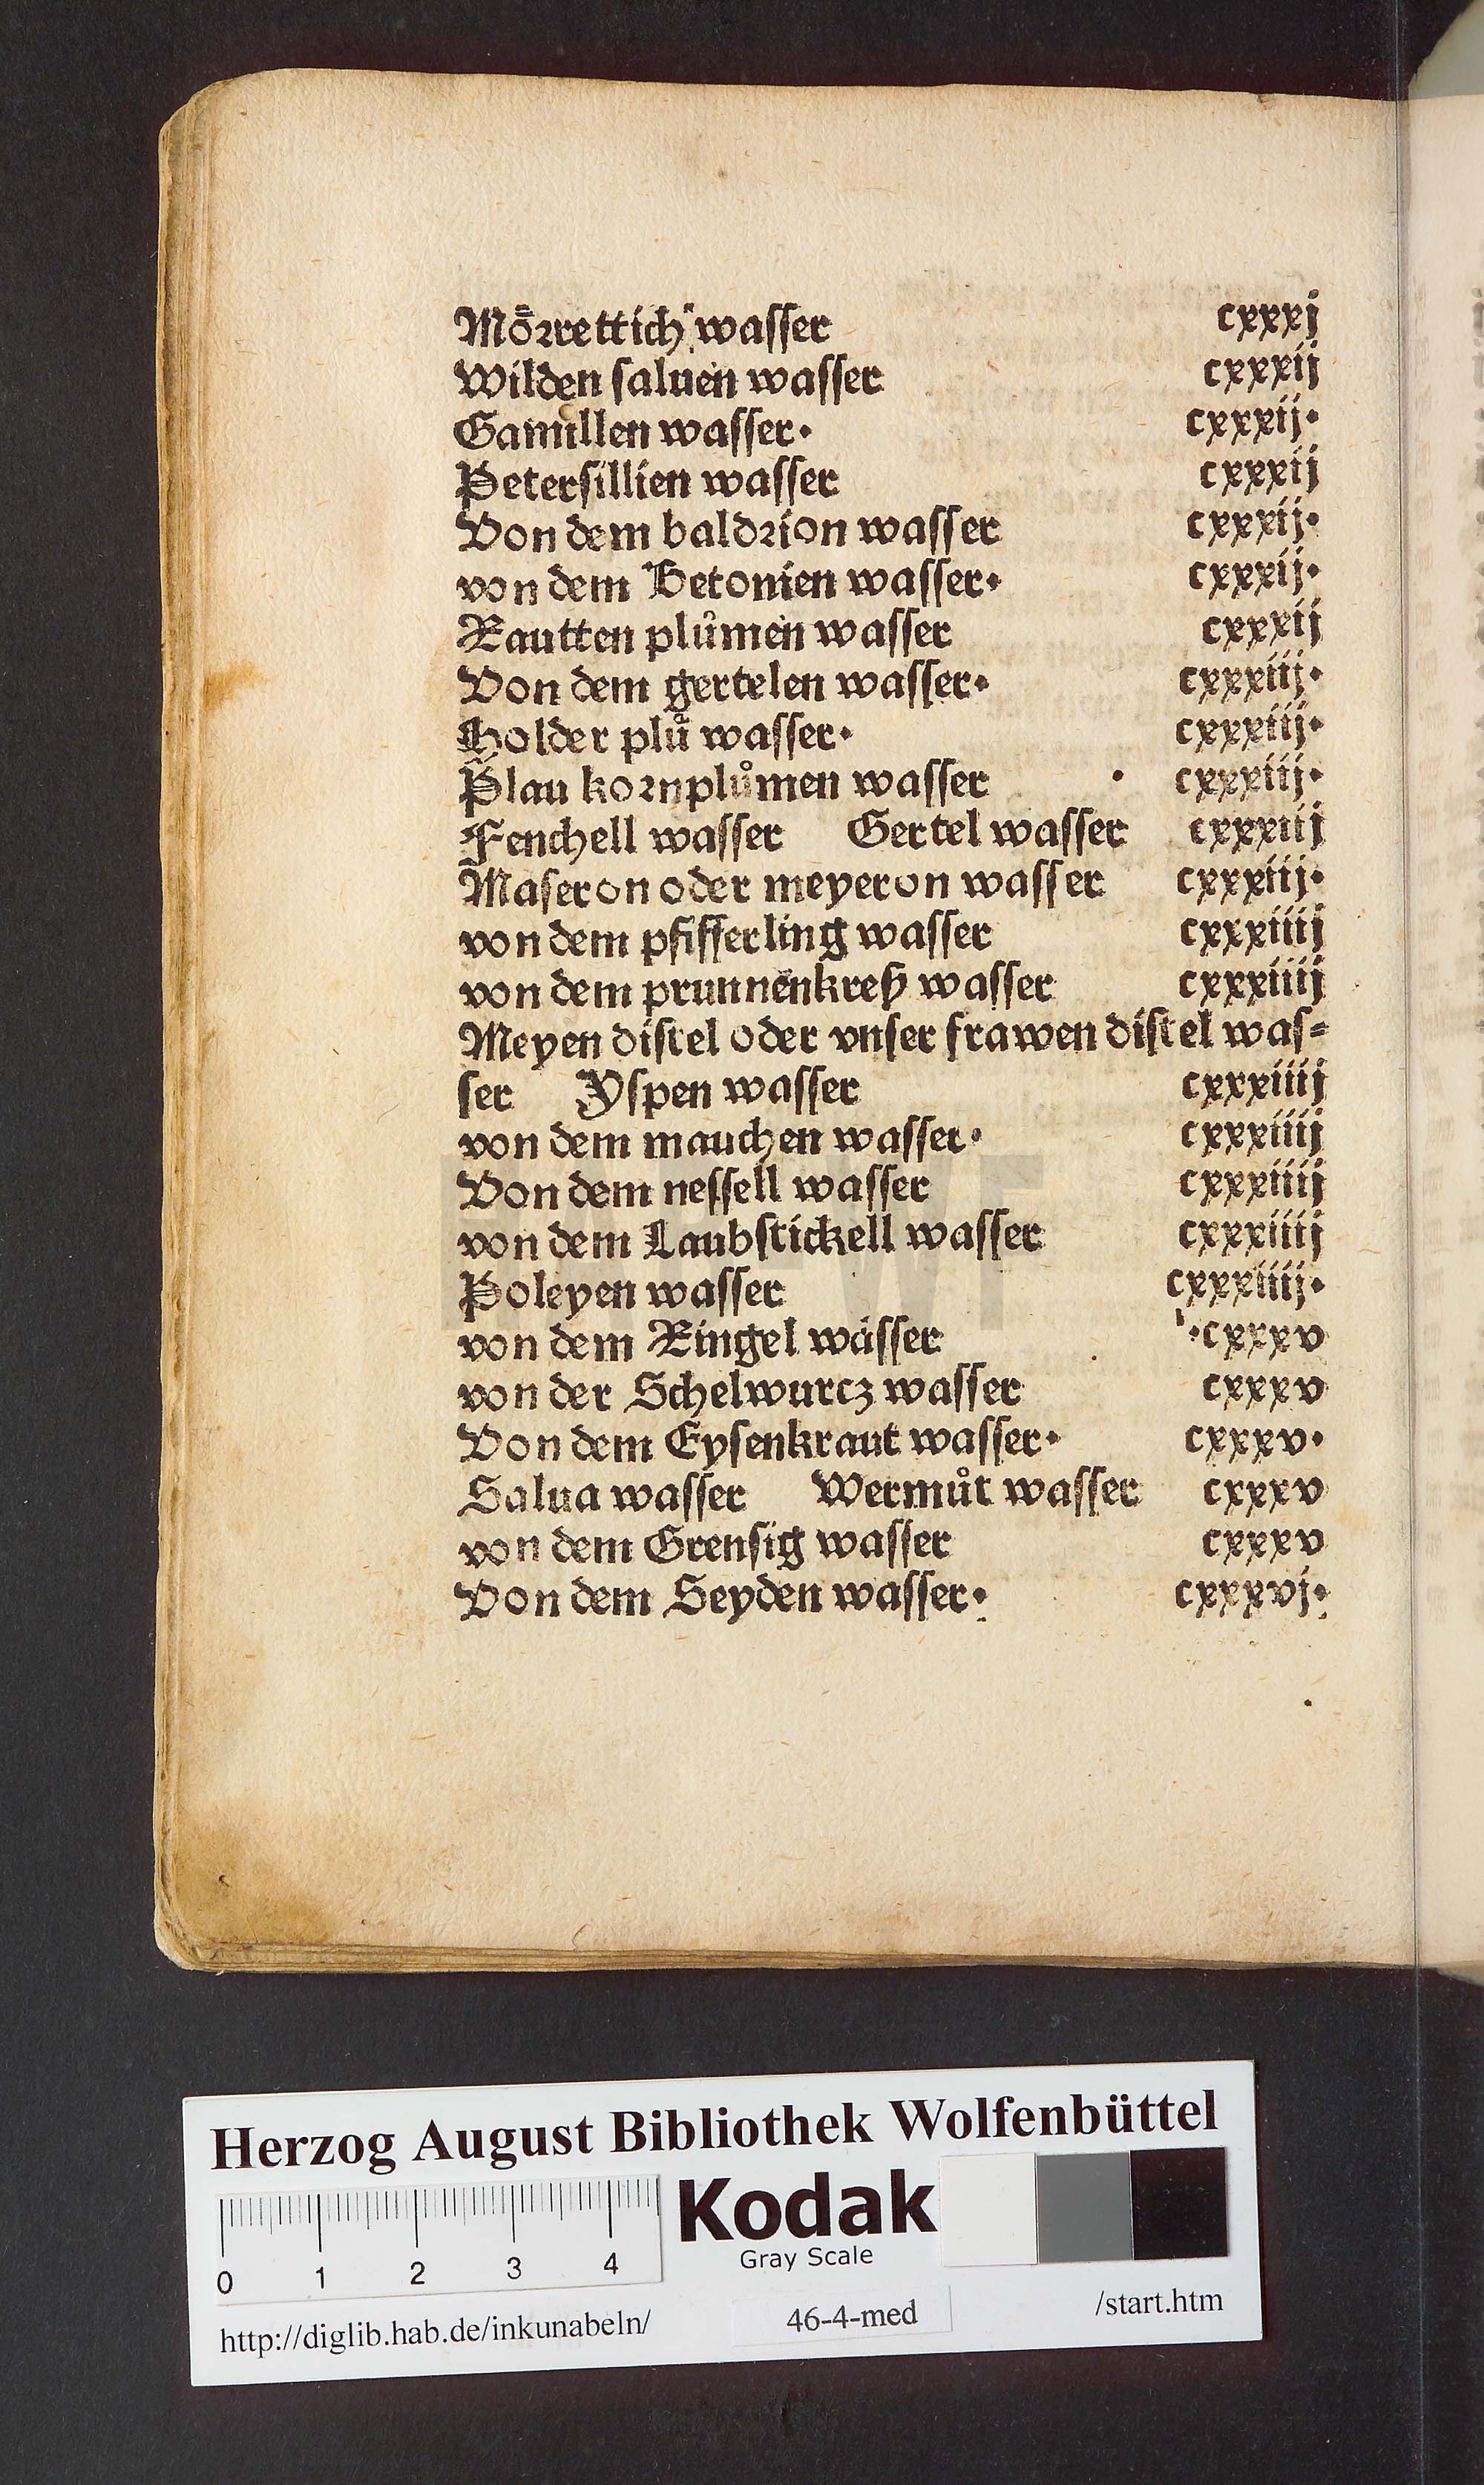 Mörrettich wasser cxxxj
Wilden saluen wasser cxxxij
Gamillen wasser. cxxxij.
Petersillien wasser cxxxij
Von dem baldrion wasser cxxxij.
von dem Betonien wasser. cxxxij.
Rautten plůmen wasser cxxxij
Von dem gertelen wasser. cxxxiij.
Holder plů wasser. cxxxiij.
Plau kornplůmen wasser cxxxiij.
Fenchell wasser Gertel wasser cxxxiij
Maseron oder meyeron wasser cxxxiij.
von dem pfifferling wasser cxxxiiij
von dem prunnenkreß wasser cxxxiiij
Meyen distel oder vnser frawen distel was=
ser Yspen wasser cxxxiiij
von dem mauchen wasser. cxxxiiij
Von dem nessell wasser cxxxiiij
von dem Laubstickell wasser cxxxiiij
Poleyen wasser cxxxiiij.
von dem Ringel wasser .cxxxv
von der Schelwurcz wasser cxxxv
Von dem Eysenkraut wasser. cxxxv.
Salua wasser Wermůt wasser cxxxv
von dem Grensig wasser cxxxv
Von dem Seyden wasser. cxxxvj.
Herzog August Bibliothek Wolfenbüttel
Kodak
Gray Scale
0 1 2 3 4
http://diglib.hab.de/inkunabeln/ 46-4-med /start.htm